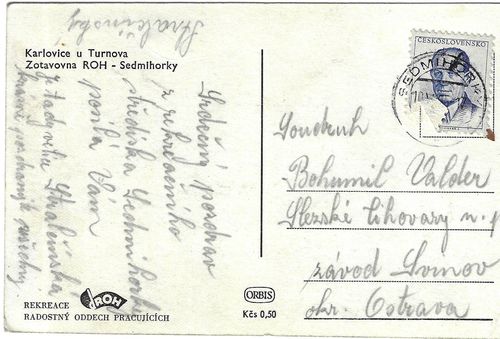 Karlovice u Turnova
Zotavovna ROH - Sedmihorky
Srdečný pozdrav
z rekreačního
střediska Sedmihorky
posílá Vám
REKREACE
ROH
RADOSTNÝ ODDECH PRACUJÍCÍCH
ORBIS
Kčs 0,50
ČESKOSLOVENSKO
SEDMIHORKY
Soudruh
Bohumil Valder
Slezské lihovary n. p.
závod Svinov
okr. Ostrava